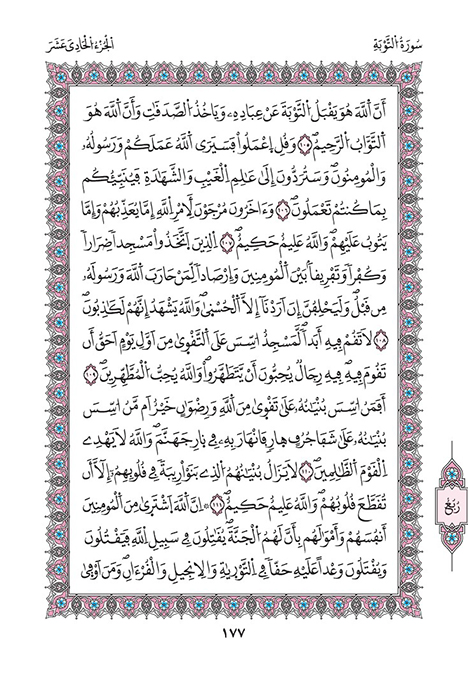 سُورَةُ التَّوْبَةِ
الْجُزْءُ الْحَادِيَ عَشَرَ
أَنَّ اَللَّهَ هُوَ يَقْبَلُ اُلتَّوْبَةَ عَنْ عِبَادِهِۦ وَيَاخُذُ اُلصَّدَقَٰتِ وَأَنَّ اَللَّهَ هُوَ
اَلتَّوَّابُ اُلرَّحِيمُۖ ١٠٥ وَقُلِ اِعْمَلُواْ فَسَيَرَى اَللَّهُ عَمَلَكُمْ وَرَسُولُهُۥ
وَالْمُومِنُونَۖ وَسَتُرَدُّونَ إِلَىٰ عَٰلِمِ اِلْغَيْبِ وَالشَّهَٰدَةِ فَيُنَبِّئُكُم
بِمَا كُنتُمْ تَعْمَلُونَۖ ١٠٦ وَءَاخَرُونَ مُرْجَوْنَ لِأَمْرِ اِللَّهِ إِمَّا يُعَذِّبُهُمْ وَإِمَّا
يَتُوبُ عَلَيْهِمْۖ وَاللَّهُ عَلِيمٌ حَكِيمٌۖ ١٠٧ اِلذِينَ اَتَّخَذُواْ مَسْجِداً ضِرَاراً
وَكُفْراً وَتَفْرِيقاَۢ بَيْنَ اَلْمُومِنِينَ وَإِرْصَاداً لِّمَنْ حَارَبَ اَللَّهَ وَرَسُولَهُۥ
مِن قَبْلُۖ وَلَيَحْلِفُنَّ إِنَ اَرَدْنَآ إِلَّا اَلْحُسْنَىٰۖ وَاللَّهُ يَشْهَدُ إِنَّهُمْ لَكَٰذِبُونَۖ
١٠٨ لَا تَقُمْ فِيهِ أَبَداًۖ لَّمَسْجِدٌ اُسِّسَ عَلَى اَلتَّقْوَىٰ مِنَ اَوَّلِ يَوْمٍ اَحَقُّ أَن
تَقُومَ فِيهِۖ فِيهِ رِجَالٌ يُحِبُّونَ أَنْ يَّتَطَهَّرُواْۖ وَاللَّهُ يُحِبُّ اُلْمُطَّهِّرِينَۖ ١٠٩
أَفَمَنُ اسِّسَ بُنْيَٰنُهُۥ عَلَىٰ تَقْوَىٰ مِنَ اَللَّهِ وَرِضْوَٰنٍ خَيْرٌ اَم مَّنُ اسِّسَ
بُنْيَٰنُهُۥ عَلَىٰ شَفَا جُرُفٍ هَارٍ فَانْهَارَ بِهِۦ فِي نَارِ جَهَنَّمَۖ وَاللَّهُ لَا يَهْدِے
اِلْقَوْمَ اَلظَّٰلِمِينَۖ ١١٠ لَا يَزَالُ بُنْيَٰنُهُمُ اُلذِے بَنَوْاْ رِيبَةً فِي قُلُوبِهِمُۥٓ إِلَّآ أَن
تُقَطَّعَ قُلُوبُهُمْۖ وَاللَّهُ عَلِيمٌ حَكِيمٌۖ ١١١ ۞ اِنَّ اَللَّهَ اَشْتَرَىٰ مِنَ اَلْمُومِنِينَ
أَنفُسَهُمْ وَأَمْوَٰلَهُم بِأَنَّ لَهُمُ اُلْجَنَّةَۖ يُقَٰتِلُونَ فِي سَبِيلِ اِللَّهِ فَيَقْتُلُونَ
وَيُقْتَلُونَۖ وَعْداً عَلَيْهِ حَقّاً فِي اِلتَّوْرَيٰةِ وَالِانجِيلِ وَالْقُرْءَانِۖ وَمَنَ اَوْفَىٰ
رُبُعٌ
١٧٧